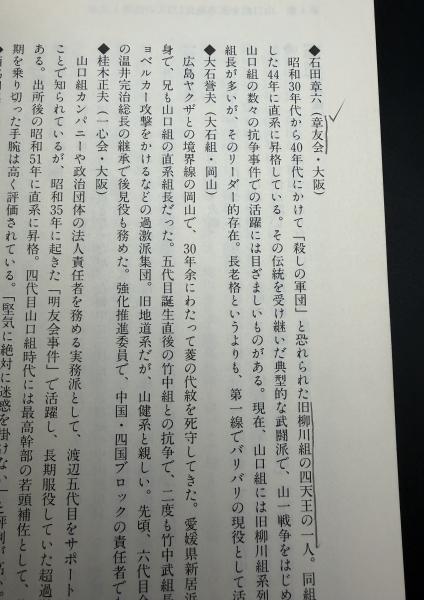 ◆石田章六（章友会・大阪）
昭和30年代から40年代にかけて「殺しの軍団」と恐れられた旧柳川組の四天王の一人。同組
した44年に直系に昇格している。その伝統を受け継いだ典型的な武闘派で、山一戦争をはじめ
山口組の数々の抗争事件での活躍には目ざましいものがある。現在、山口組には旧柳川組系列
組長が多いが、そのリーダー的存在。長老格というよりも、第一線でバリバリの現役として活
◆大石誉夫（大石組・岡山）
広島ヤクザとの境界線の岡山で、30年余にわたって菱の代紋を死守してきた。愛媛県新居浜
身で、兄も山口組の直系組長だった。五代目誕生直後の竹中組との抗争で、二度も竹中武組長
ョベルカー攻撃をかけるなどの過激派集団。旧地道系だが、山健系と親しい。先頃、六代目合
の温井完治総長の継承で後見役も務めた。強化推進委員で、中国・四国ブロックの責任者でも
◆桂木正夫（一心会・大阪）
山口組カンパニーや政治団体の法人責任者を務める実務派として、渡辺五代目をサポート
ことで知られているが、昭和35年に起きた「明友会事件」で活躍し、長期服役していた超過
ある。出所後の昭和51年に直系に昇格。四代目山口組時代には最高幹部の若頭補佐として、
期を乗り切った手腕は高く評価されている。「堅気に絶対に迷惑を掛けない」と評判が高い。